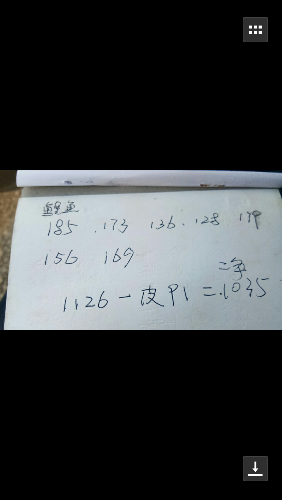 鲤鱼
185 . 173 136 . 128 179
156 169
二净
1126 - 皮91 = . 1035